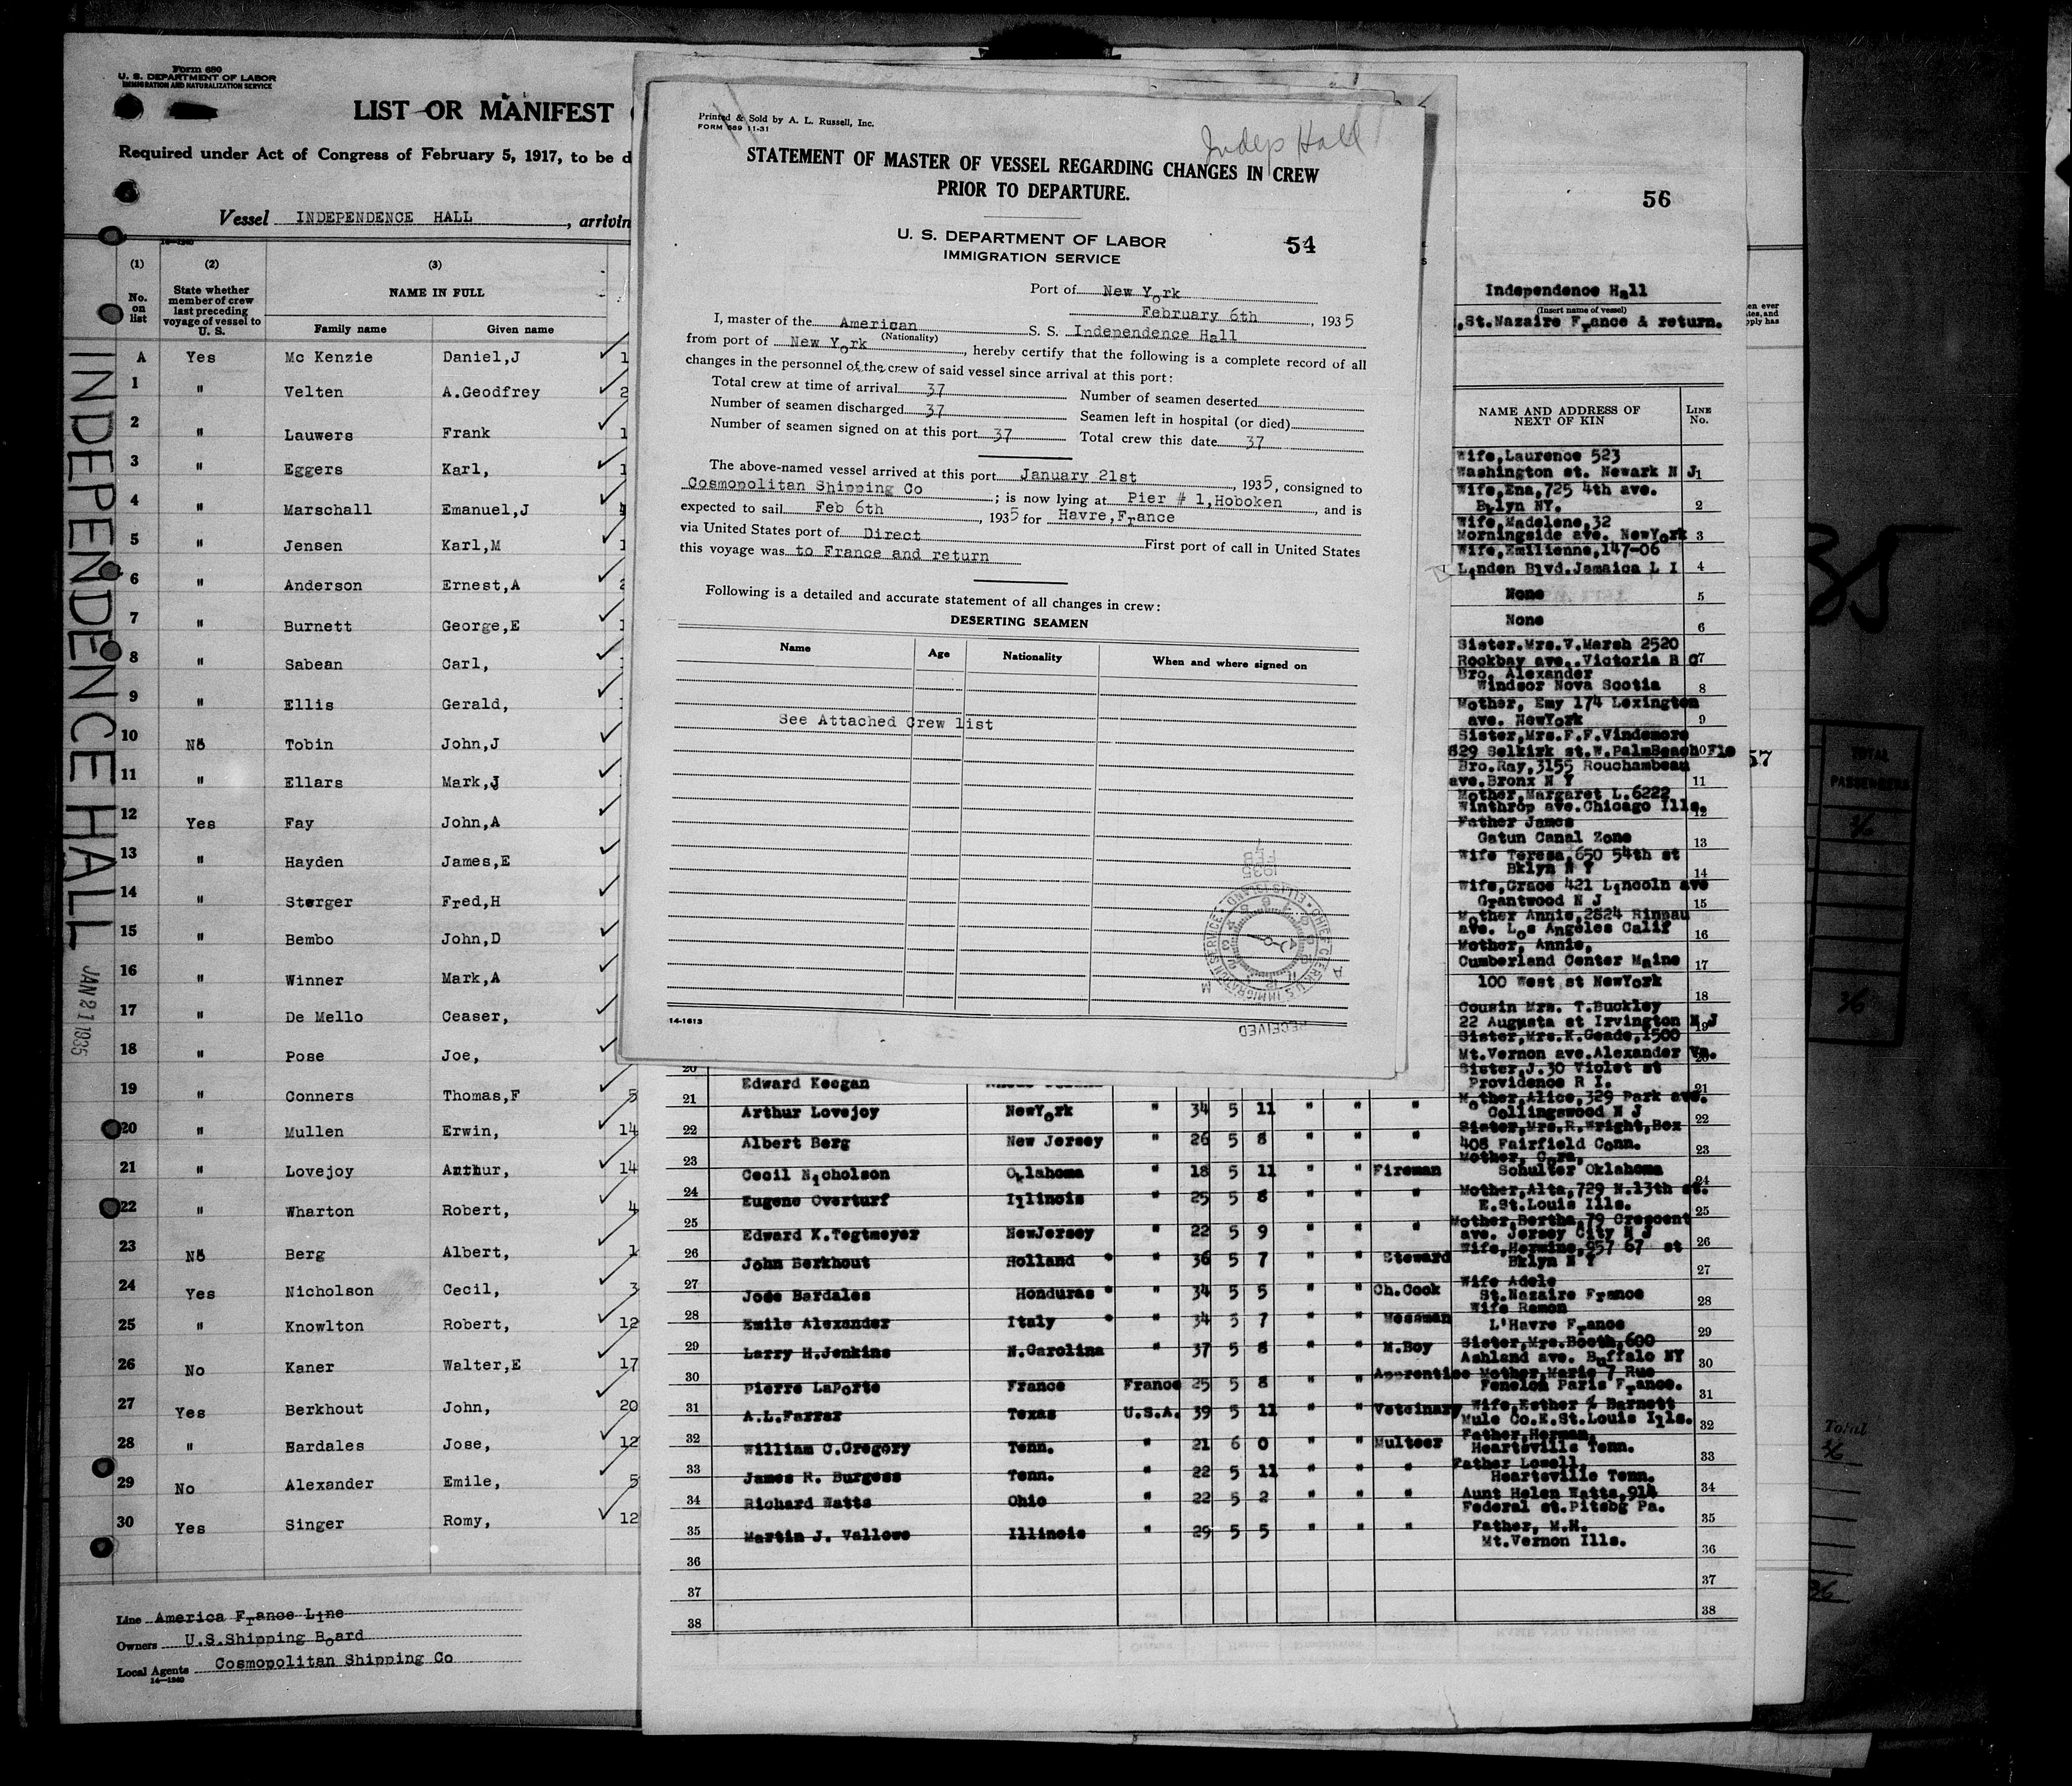 Form 680
U. S. DEPARTMENT OF LABOR
IMMIGRATION AND NATURALIZATION SERVICE
LIST OR MANIFEST
Required under Act of Congress of February 5, 1917, to be d
Vessel INDEPENDENCE HALL, arrivin
(1) (2) (3)
No. on list State whether member of crew last preceding voyage of vessel to U. S. NAME IN FULL
Family name Given name
A Yes Mc Kenzie Daniel,J 1
1 " Velten A.Geodfrey 2
2 " Lauwers Frank 1
3 " Eggers Karl, 1
4 " Marschall Emanuel,J
5 " Jensen Karl,M 1
6 " Anderson Ernest,A 2
7 " Burnett George,E 1
8 " Sabean Carl,
9 " Ellis Gerald,
10 No Tobin John,J
11 " Ellars Mark,J
12 Yes Fay John,A
13 " Hayden James,E
14 " Sterger Fred,H
15 " Bembo John,D
16 " Winner Mark,A
17 " De Mello Ceaser,
18 " Pose Joe,
19 " Conners Thomas,F 5
20 " Mullen Erwin, 14
21 " Lovejoy Arthur, 14
22 " Wharton Robert, 4
23 No Berg Albert, 1
24 Yes Nicholson Cecil, 3
25 " Knowlton Robert, 12
26 No Kaner Walter,E 17
27 Yes Berkhout John, 20
28 " Bardales Jose, 12
29 No Alexander Emile, 5
30 Yes Singer Romy, 12
Line America France Line
Owners U.S.Shipping Board
Local Agents Cosmopolitan Shipping Co
14-1240
INDEPENDENCE HALL
JAN 21 1935
Printed & Sold by A. L. Russell, Inc.
FORM 689 11-31
Indep Hall
STATEMENT OF MASTER OF VESSEL REGARDING CHANGES IN CREW
PRIOR TO DEPARTURE.
U. S. DEPARTMENT OF LABOR
IMMIGRATION SERVICE
54
Port of New York
February 6th, 1935
I, master of the American S. S. Independence Hall
(Nationality)
from port of New York, hereby certify that the following is a complete record of all
changes in the personnel of the crew of said vessel since arrival at this port:
Total crew at time of arrival 37 Number of seamen deserted
Number of seamen discharged 37 Seamen left in hospital (or died)
Number of seamen signed on at this port 37 Total crew this date 37
The above-named vessel arrived at this port January 21st, 1935, consigned to
Cosmopolitan Shipping Co; is now lying at Pier # 1,Hoboken, and is
expected to sail Feb 6th, 1935 for Havre,France
via United States port of Direct First port of call in United States
this voyage was to France and return
Following is a detailed and accurate statement of all changes in crew:
DESERTING SEAMEN
Name Age Nationality When and where signed on
See Attached Crew list
RECEIVED
FEB 7 1935
CHIEF CLERK U.S. IMMIGRATION SERVICE ELLIS ISLAND
14-1613
56
Independence Hall
(Insert name of vessel)
,St.Nazaire France & return.
NAME AND ADDRESS OF NEXT OF KIN LINE No.
Wife,Laurence 523
Washington st. Newark N J 1
Wife,Ena,725 4th ave.
Bklyn NY. 2
Wife,Madelene,32
Morningside ave. NewYork 3
Wife,Emilienne,147-06
Linden Blvd.Jamaica L I 4
None 5
None 6
Sister.Mrs.V.Marsh 2520
Rockbay ave..Victoria B C 7
Bro. Alexander
Windsor Nova Scotia 8
Mother, Emy 174 Lexington
ave. NewYork 9
Sister,Mrs.F.F.Vindemore
529 Selkirk st.W.PalmBeach Flo 10
Bro.Ray,3155 Rouchambeau
ave.Bronx N Y 11
Mother,Margaret L.6222
Winthrop ave.Chicago Ills. 12
Father James
Gatun Canal Zone 13
Wife Teresa,650 54th st
Bklyn N Y 14
Wife,Grace 421 Lincoln ave
Grantwood N J 15
Mother Annie,2824 Rinnau
ave. Los Angeles Calif 16
Mother, Annie,
Cumberland Center Maine 17
100 West st NewYork 18
Cousin Mrs. T.Buckley
22 Augusta st Irvington N J 19
Sister,Mrs.K.Geade,1500
Mt.Vernon ave.Alexander Va. 20
Sister,J.30 Violet st
Providence R I. 21
Mother,Alice,329 Park ave.
Collingswood N J 22
Sister,Mrs.R.Wright,Box
408 Fairfield Conn. 23
Mother, Cora,
Schulter Oklahoma 24
Mother,Alta,729 N.13th st.
E.St.Louis Ills. 25
Mother,Bertha,79 Crescent
ave. Jersey City N J 26
Wife,Hermine,957 67 st
Bklyn N Y 27
Wife Adele
St.Nazaire France 28
Wife Ramon
L'Havre France 29
Sister,Mrs.Booth,600
Ashland ave. Buffalo NY 30
Mother,Marie 7 Rue
Fenelon Paris France. 31
Wife,Esther % Barnett
Mule Co.E.St.Louis Ills. 32
Father,Herman,
Heartsville Tenn. 33
Father Lowell,
Heartsville Tenn. 34
Aunt Helen Watts,914
Federal st.Pitsbg Pa. 35
Father, M.H.
Mt.Vernon Ills. 36
37
38
20 Edward Keegan
21 Arthur Lovejoy NewYork " 34 5 11 " " "
22 Albert Berg New Jersey " 26 5 8 " " "
23 Cecil Nicholson Oklahoma " 18 5 11 " " Fireman
24 Eugene Overturf Illinois " 25 5 8 " " "
25 Edward K.Tegtmeyer NewJersey " 22 5 9 " " "
26 John Berkhout Holland " 36 5 7 " " Steward
27 Jose Bardales Honduras " 34 5 5 " " Ch.Cook
28 Emile Alexander Italy " 34 5 7 " " Messman
29 Larry H.Jenkins N.Carolina " 37 5 8 " " M.Boy
30 Pierre LaPorte France France 25 5 8 " " Apprentice
31 A.L.Farrar Texas U.S.A. 39 5 11 " " Veteinary
32 William C.Gregory Tenn. " 21 6 0 " " Multeer
33 James R. Burgess Tenn. " 22 5 11 " " "
34 Richard Watts Ohio " 22 5 2 " " "
35 Martin J. Vallowe Illinois " 29 5 5 " " "
36
37
38
57
TOTAL PASSENGERS
36
Total
36